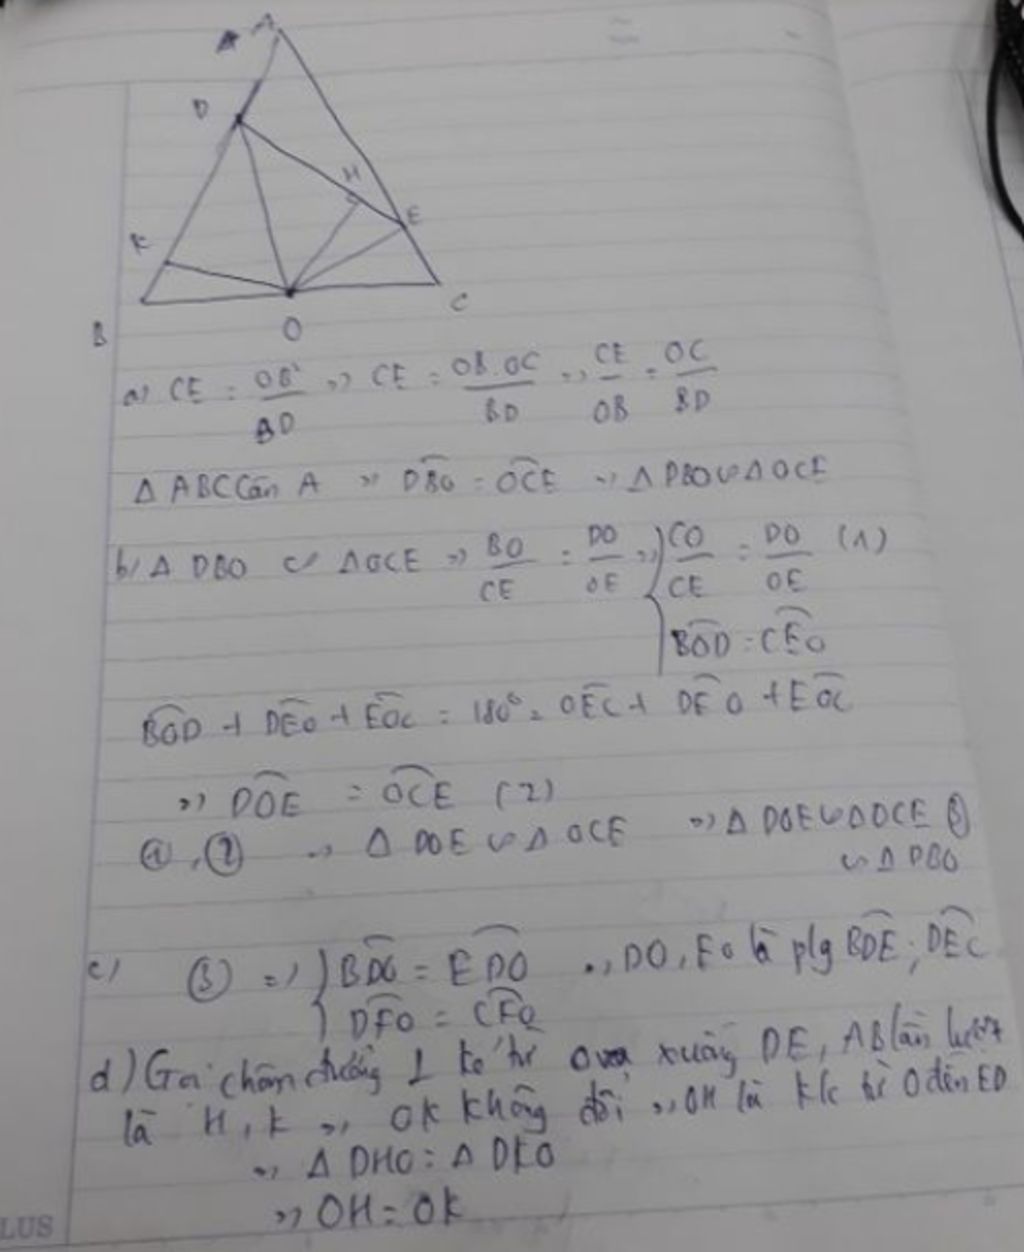 A
D
H
E
K
B
O
C
a) CE = OB²/BD => CE = OB.OC/BD => CE/OB = OC/BD
Δ ABC cân A => DBO = OCE => Δ DBO ∽ Δ OCE
b) Δ DBO ∽ Δ OCE => BO/CE = DO/OE => { CO/CE = DO/OE (1)
BOD = CEO
BOD + DEO + EOC = 180° = OEC + DEO + EOC
=> DOE = OCE (2)
(1), (2) => Δ DOE ∽ Δ OCE => Δ DOE ∽ Δ OCE (3)
∽ Δ DBO
c) (3) => { BDO = EDO => DO, EO là plg BDE; DEC
DEO = CEO
d) Gọi chân đường ⊥ kẻ từ O xuống DE, AB lần lượt
là H, K => OK không đổi => OH là k/c từ O đến ED
=> Δ DHO = Δ DKO
=> OH = OK
LUS